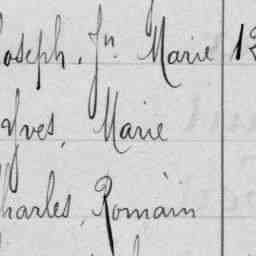 Joseph, Jn Marie 12
Yves, Marie
Charles, Romain